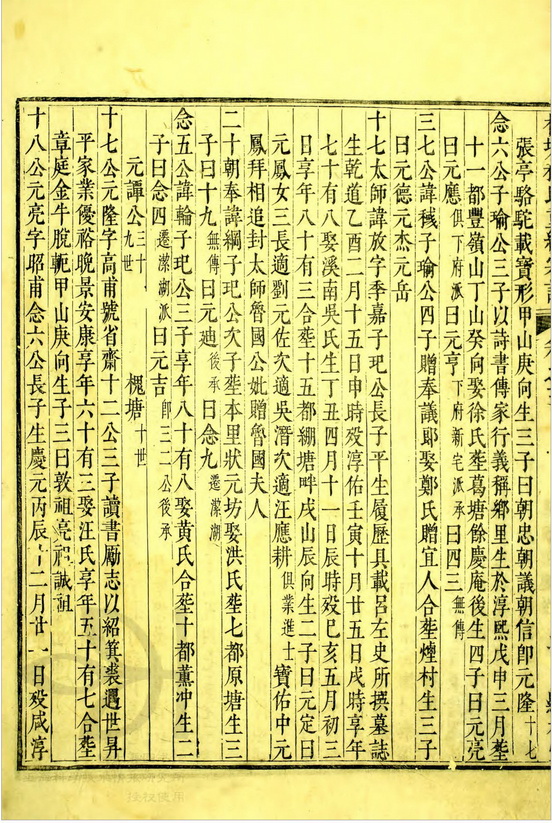 張亭駱駝載寶形甲山庚向生三子曰朝忠朝議朝信卽元隆十七
念六公子瑜公三子以詩書傳家行義稱鄉里生於淳熙戊申三月塟
十一都豐嶺山丁山癸向娶徐氏塟葛塘餘慶庵後生四子曰元亮
曰元應俱下府派曰元亨下府新宅派承曰四三無傳
三七公諱㦷子瑜公四子贈奉議郞娶鄭氏贈宜人合塟煙村生三子
曰元德元杰元岳
十七太師諱放字季嘉子玘公長子平生履歷具載呂左史所撰墓誌
生乾道乙酉二月十五日申時殁淳佑壬寅十月廿五日戌時享年
七十有八娶溪南吳氏生丁丑四月十一日辰時殁已亥五月初三
日享年八十有三合塟十五都綳塘畔戌山辰向生二子曰元定曰
元鳳女三長適劉元佐次適吳潛次適汪應耕俱業進士寶佑中元
鳳拜相追封太師魯國公妣贈魯國夫人
二十朝奉諱綱子玘公次子塟本里狀元坊娶洪氏塟七都原塘生三
子曰十九無傳曰元廸後承曰念九遷潔湖
念五公諱輪子玘公三子享年八十有八娶黄氏合塟十都薰冲生二
子曰念四遷潔湖派曰元吉卽三二公後承
元譚公三十九世 槐塘十世
十七公元隆字高甫號省齋十二公三子讀書勵志以紹箕裘遇世昇
平家業優裕晩景安康享年六十有三娶汪氏享年五十有七合塟
章庭金牛脫軛甲山庚向生子三曰敦祖亮祖誠祖
十八公元亮字昭甫念六公長子生慶元丙辰十二月廿一日殁咸淳